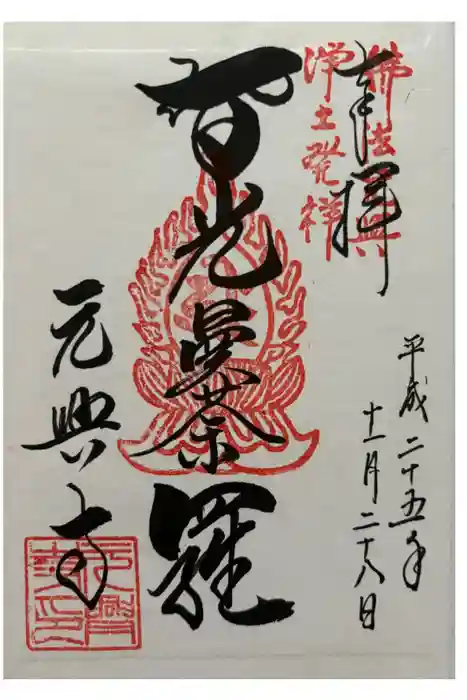 奉拝
佛法元興
浄土発祥
平成二十五年
十一月二十八日
智光曼荼羅
元興寺